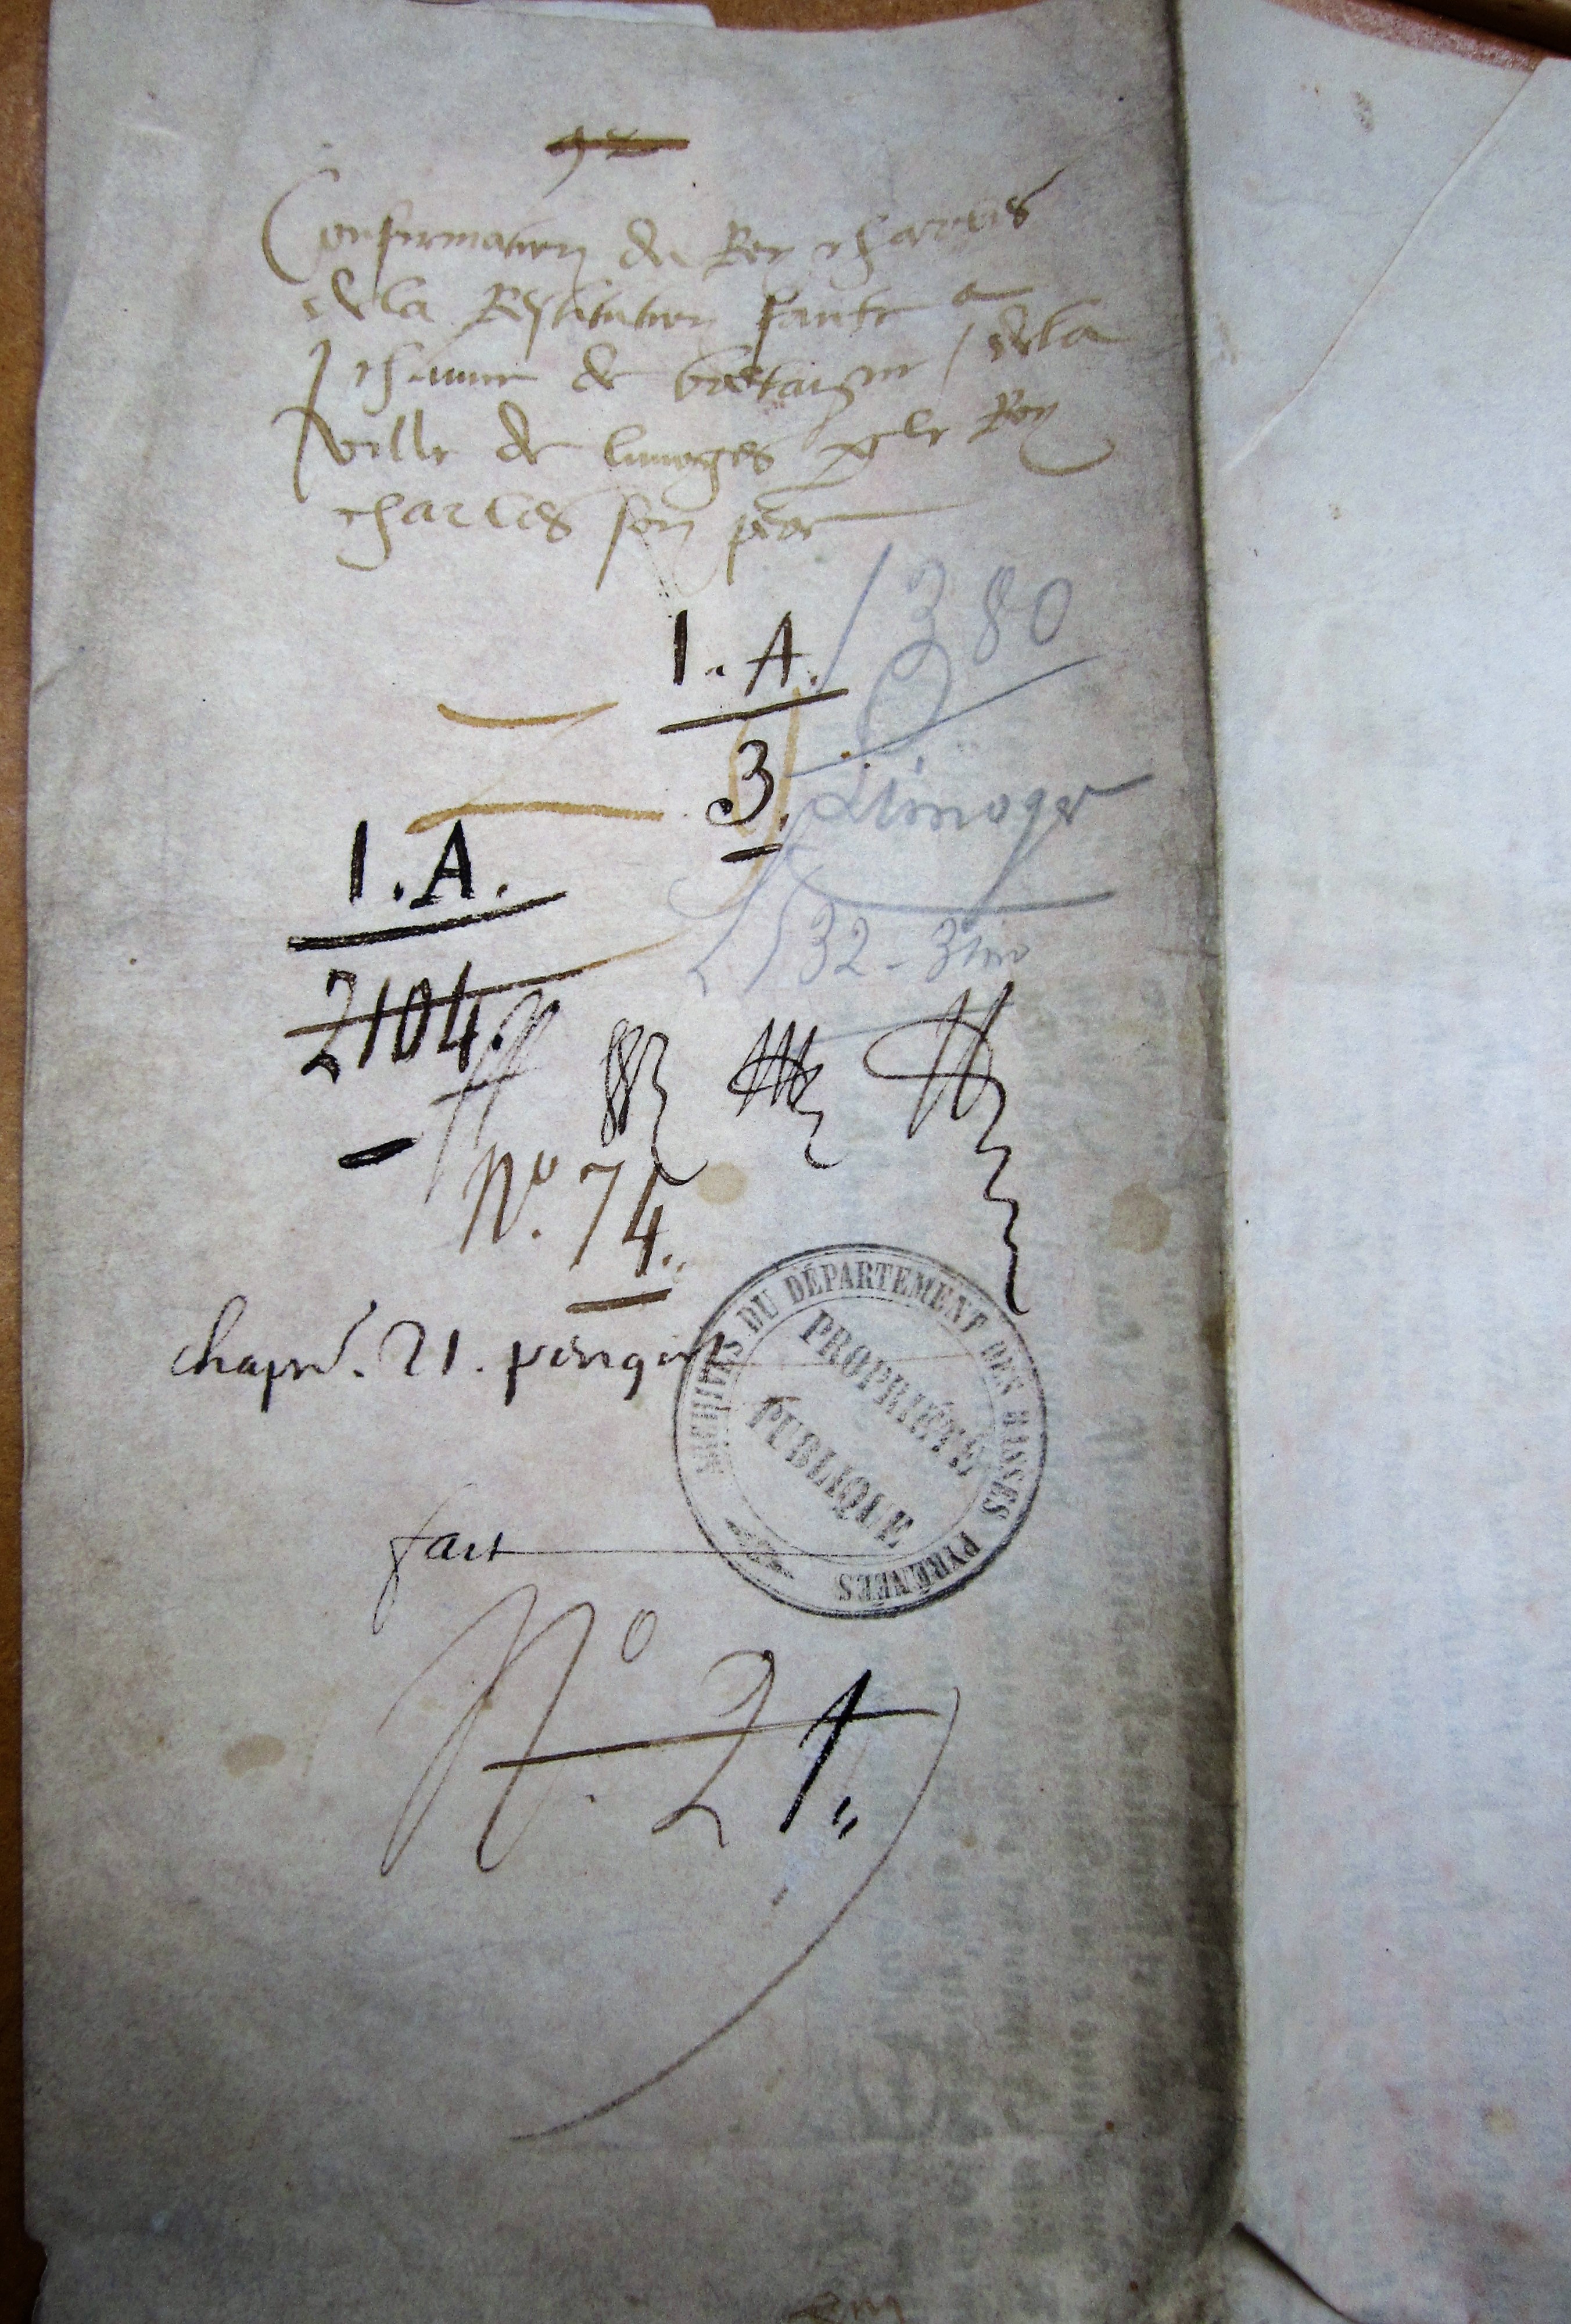 Confirmation du Roy charles
de la Restitution faicte a
Jehanne de bretaigne / de la
ville de limoges p le Roy
charles son pere
1380
I. A.
3.
Limoges
I. A.
2104.
No. 74.
chapre. 21. perigort
ARCHIVES DU DÉPARTEMENT DES BASSES PYRÉNÉES
PROPRIÉTÉ
PUBLIQUE
fait
No. 21